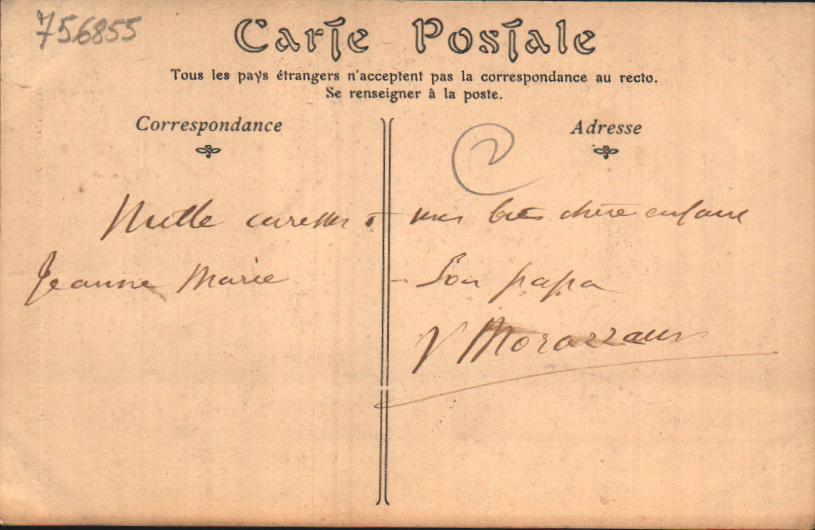 756855
Carte Postale
Tous les pays étrangers n'acceptent pas la correspondance au recto.
Se renseigner à la poste.
Correspondance
Adresse
2
Mille caresses à ma chère enfant
Jeanne Marie - Son papa